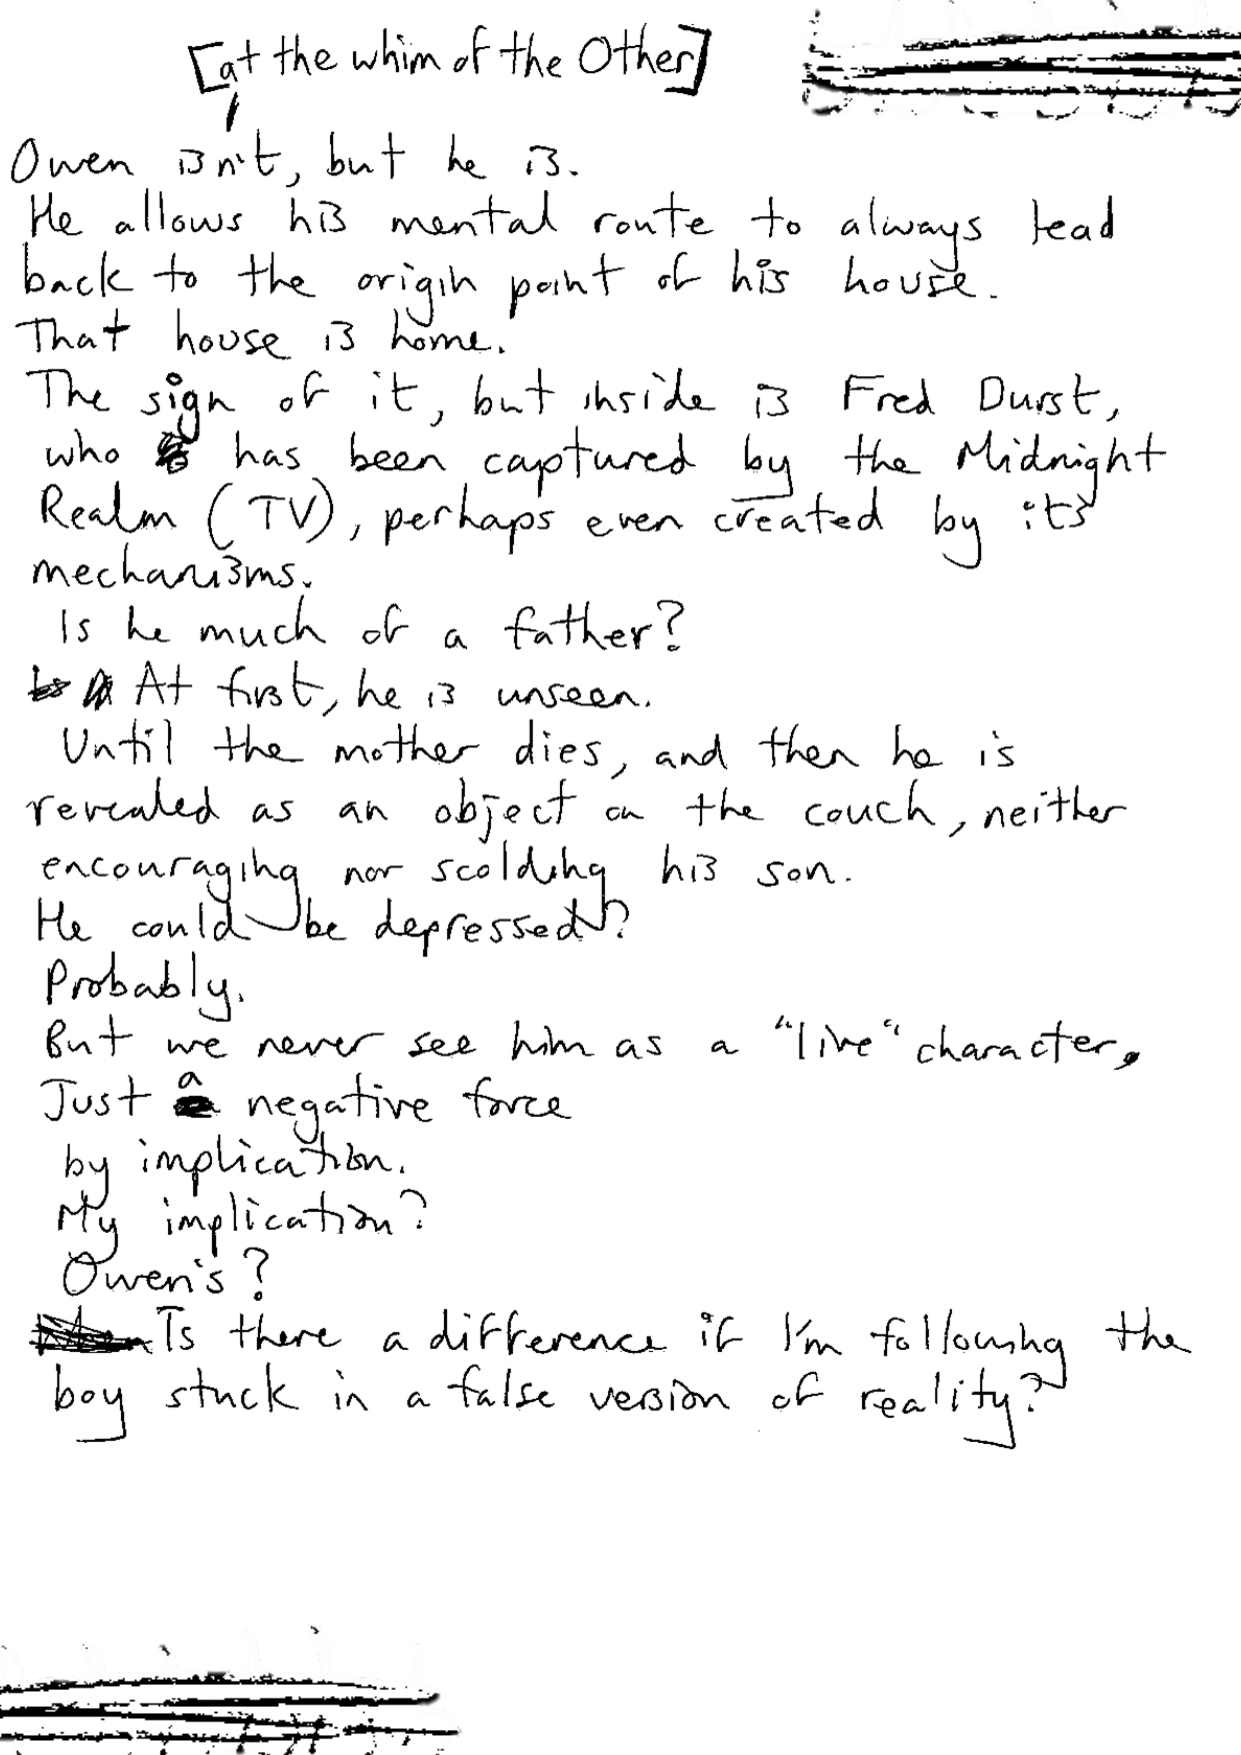 [at the whim of the Other]
Owen isn't, but he is.
He allows his mental route to always lead
back to the origin point of his house.
That house is home.
The sign of it, but inside is Fred Durst,
who has been captured by the Midnight
Realm (TV), perhaps even created by its
mechanisms.
Is he much of a father?
At first, he is unseen.
Until the mother dies, and then he is
revealed as an object on the couch, neither
encouraging nor scolding his son.
He could be depressed?
Probably.
But we never see him as a "live" character,
Just a negative force
by implication.
My implication?
Owen's?
Is there a difference if I'm following the
boy stuck in a false version of reality?